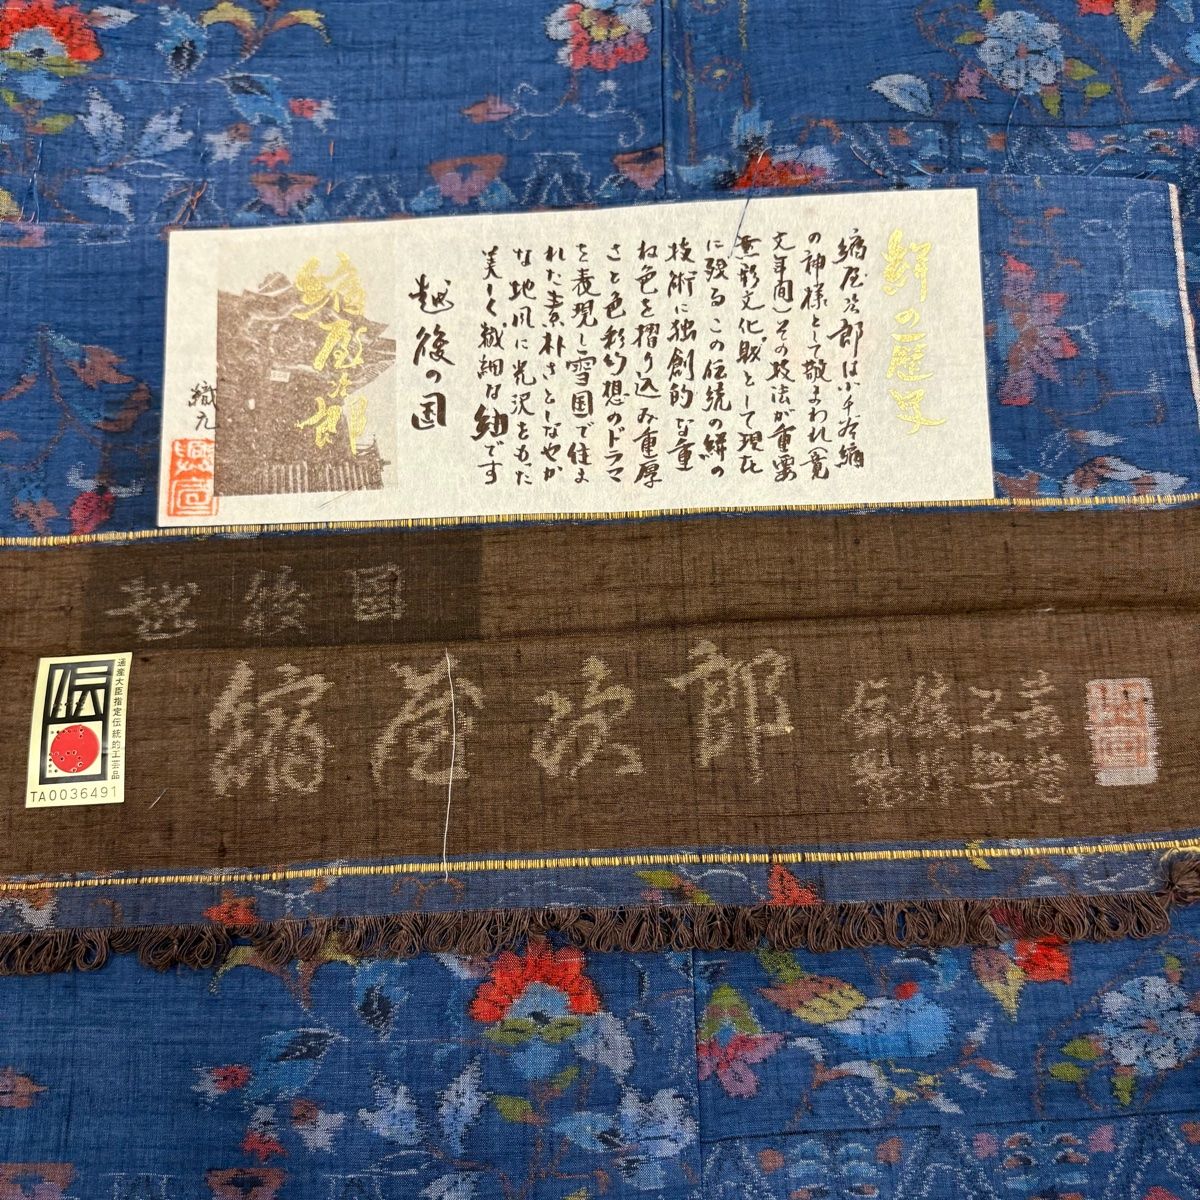 絣の歴史
縞屋次郎は小千谷縮
の神様として敬まわれ(寛
文年間)その技法が重要
無形文化財として現在
に残るこの伝統の絣の
技術に独創的な重
ね色を摺り込み重厚
さと色彩幻想のドラマ
を表現し雪国で住ま
れた素朴さとしなやか
な地風に光沢をもった
美しく繊細な紬です
越後の国
縞屋次郎
織元
越後国
縮屋次郎
伝統工芸
通産大臣指定伝統的工芸品
伝
TA0036491